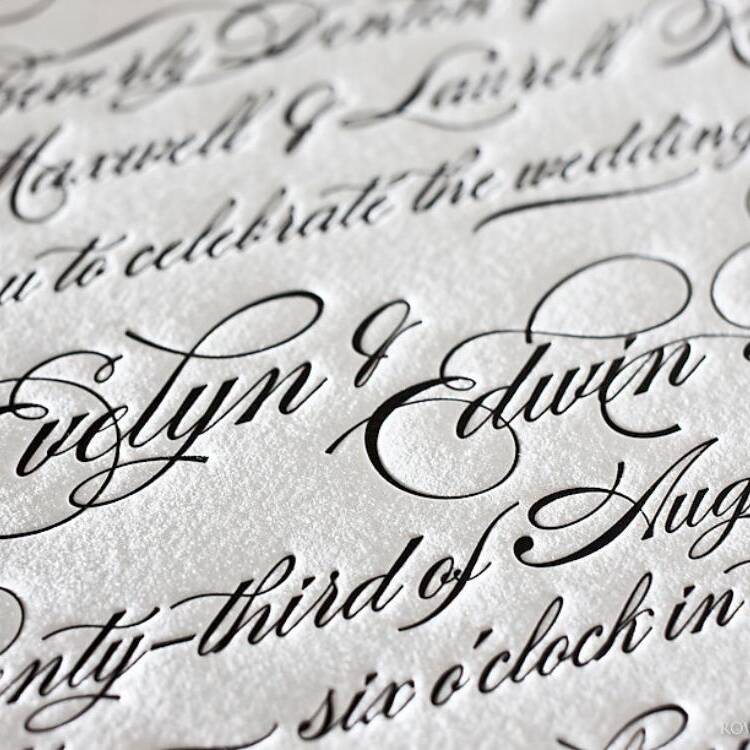 Beverly Denton &
Maxwell & Laurell R
u to celebrate the wedding
Evelyn & Edwin
enty-third of Aug
six o'clock in
ROW